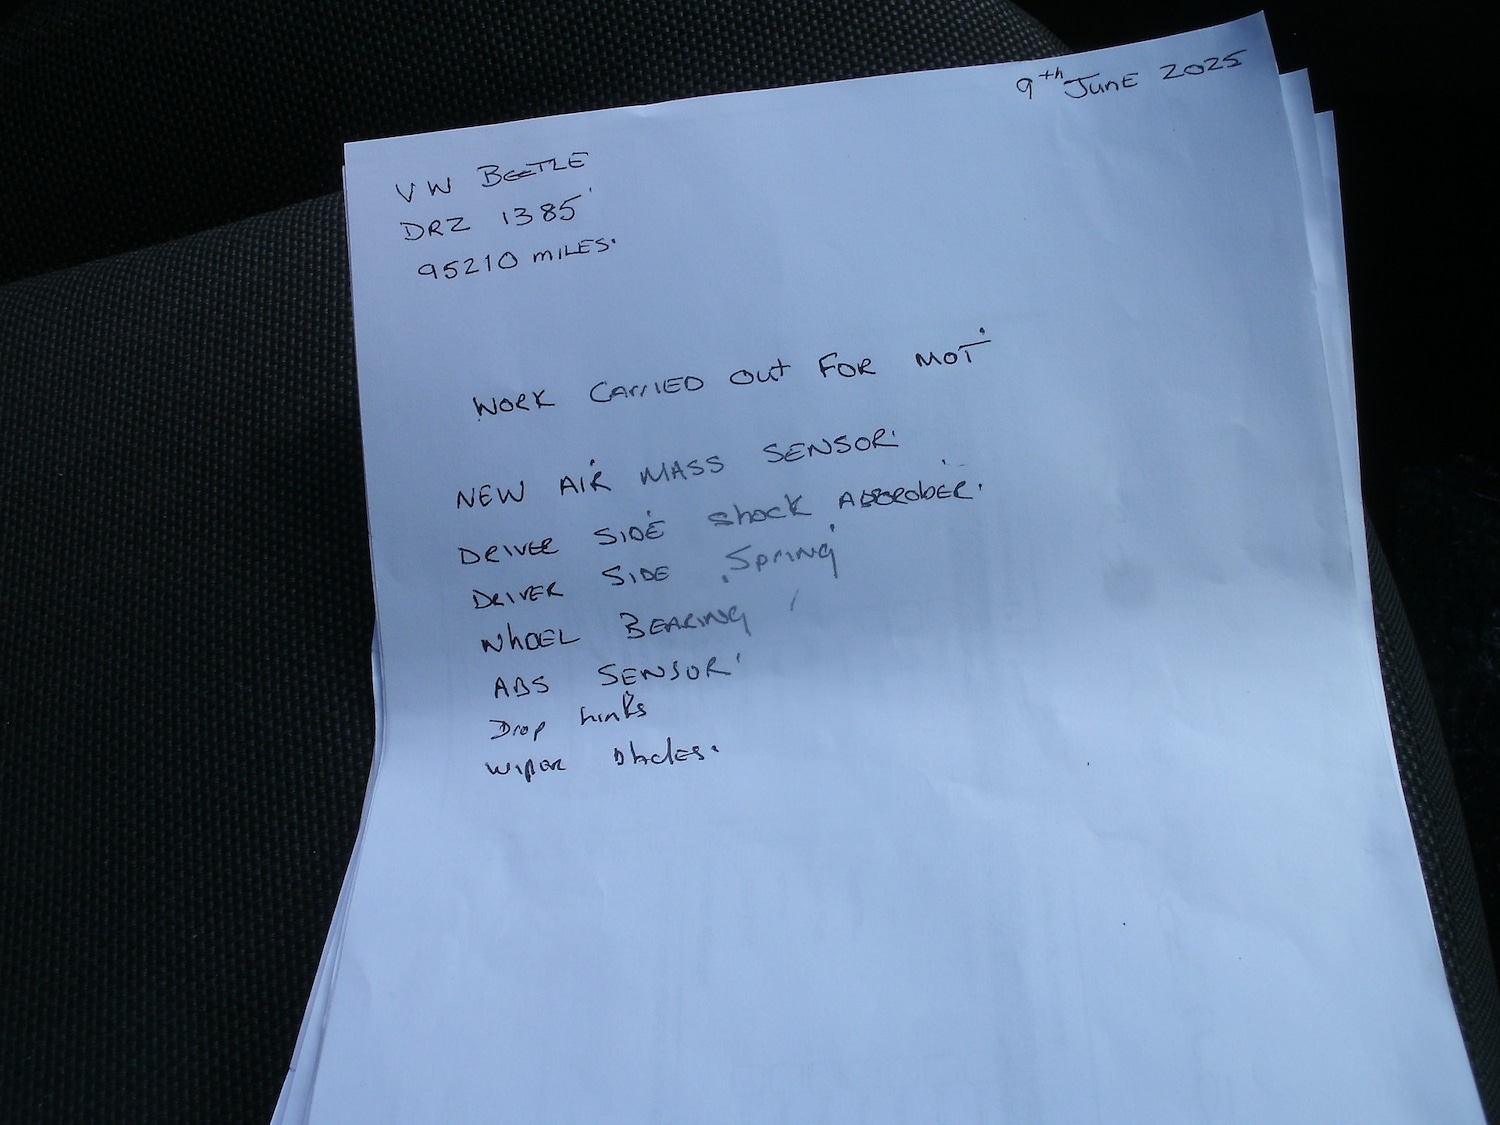 9th June 2025
VW BEETLE
DRZ 1385
95210 MILES.
WORK CARRIED OUT FOR MOT
NEW AIR MASS SENSOR
DRIVER SIDE Shock ABBROBER.
DRIVER SIDE Spring
WHEEL BEARING
ABS SENSOR
Drop Links
WIPER Blades.